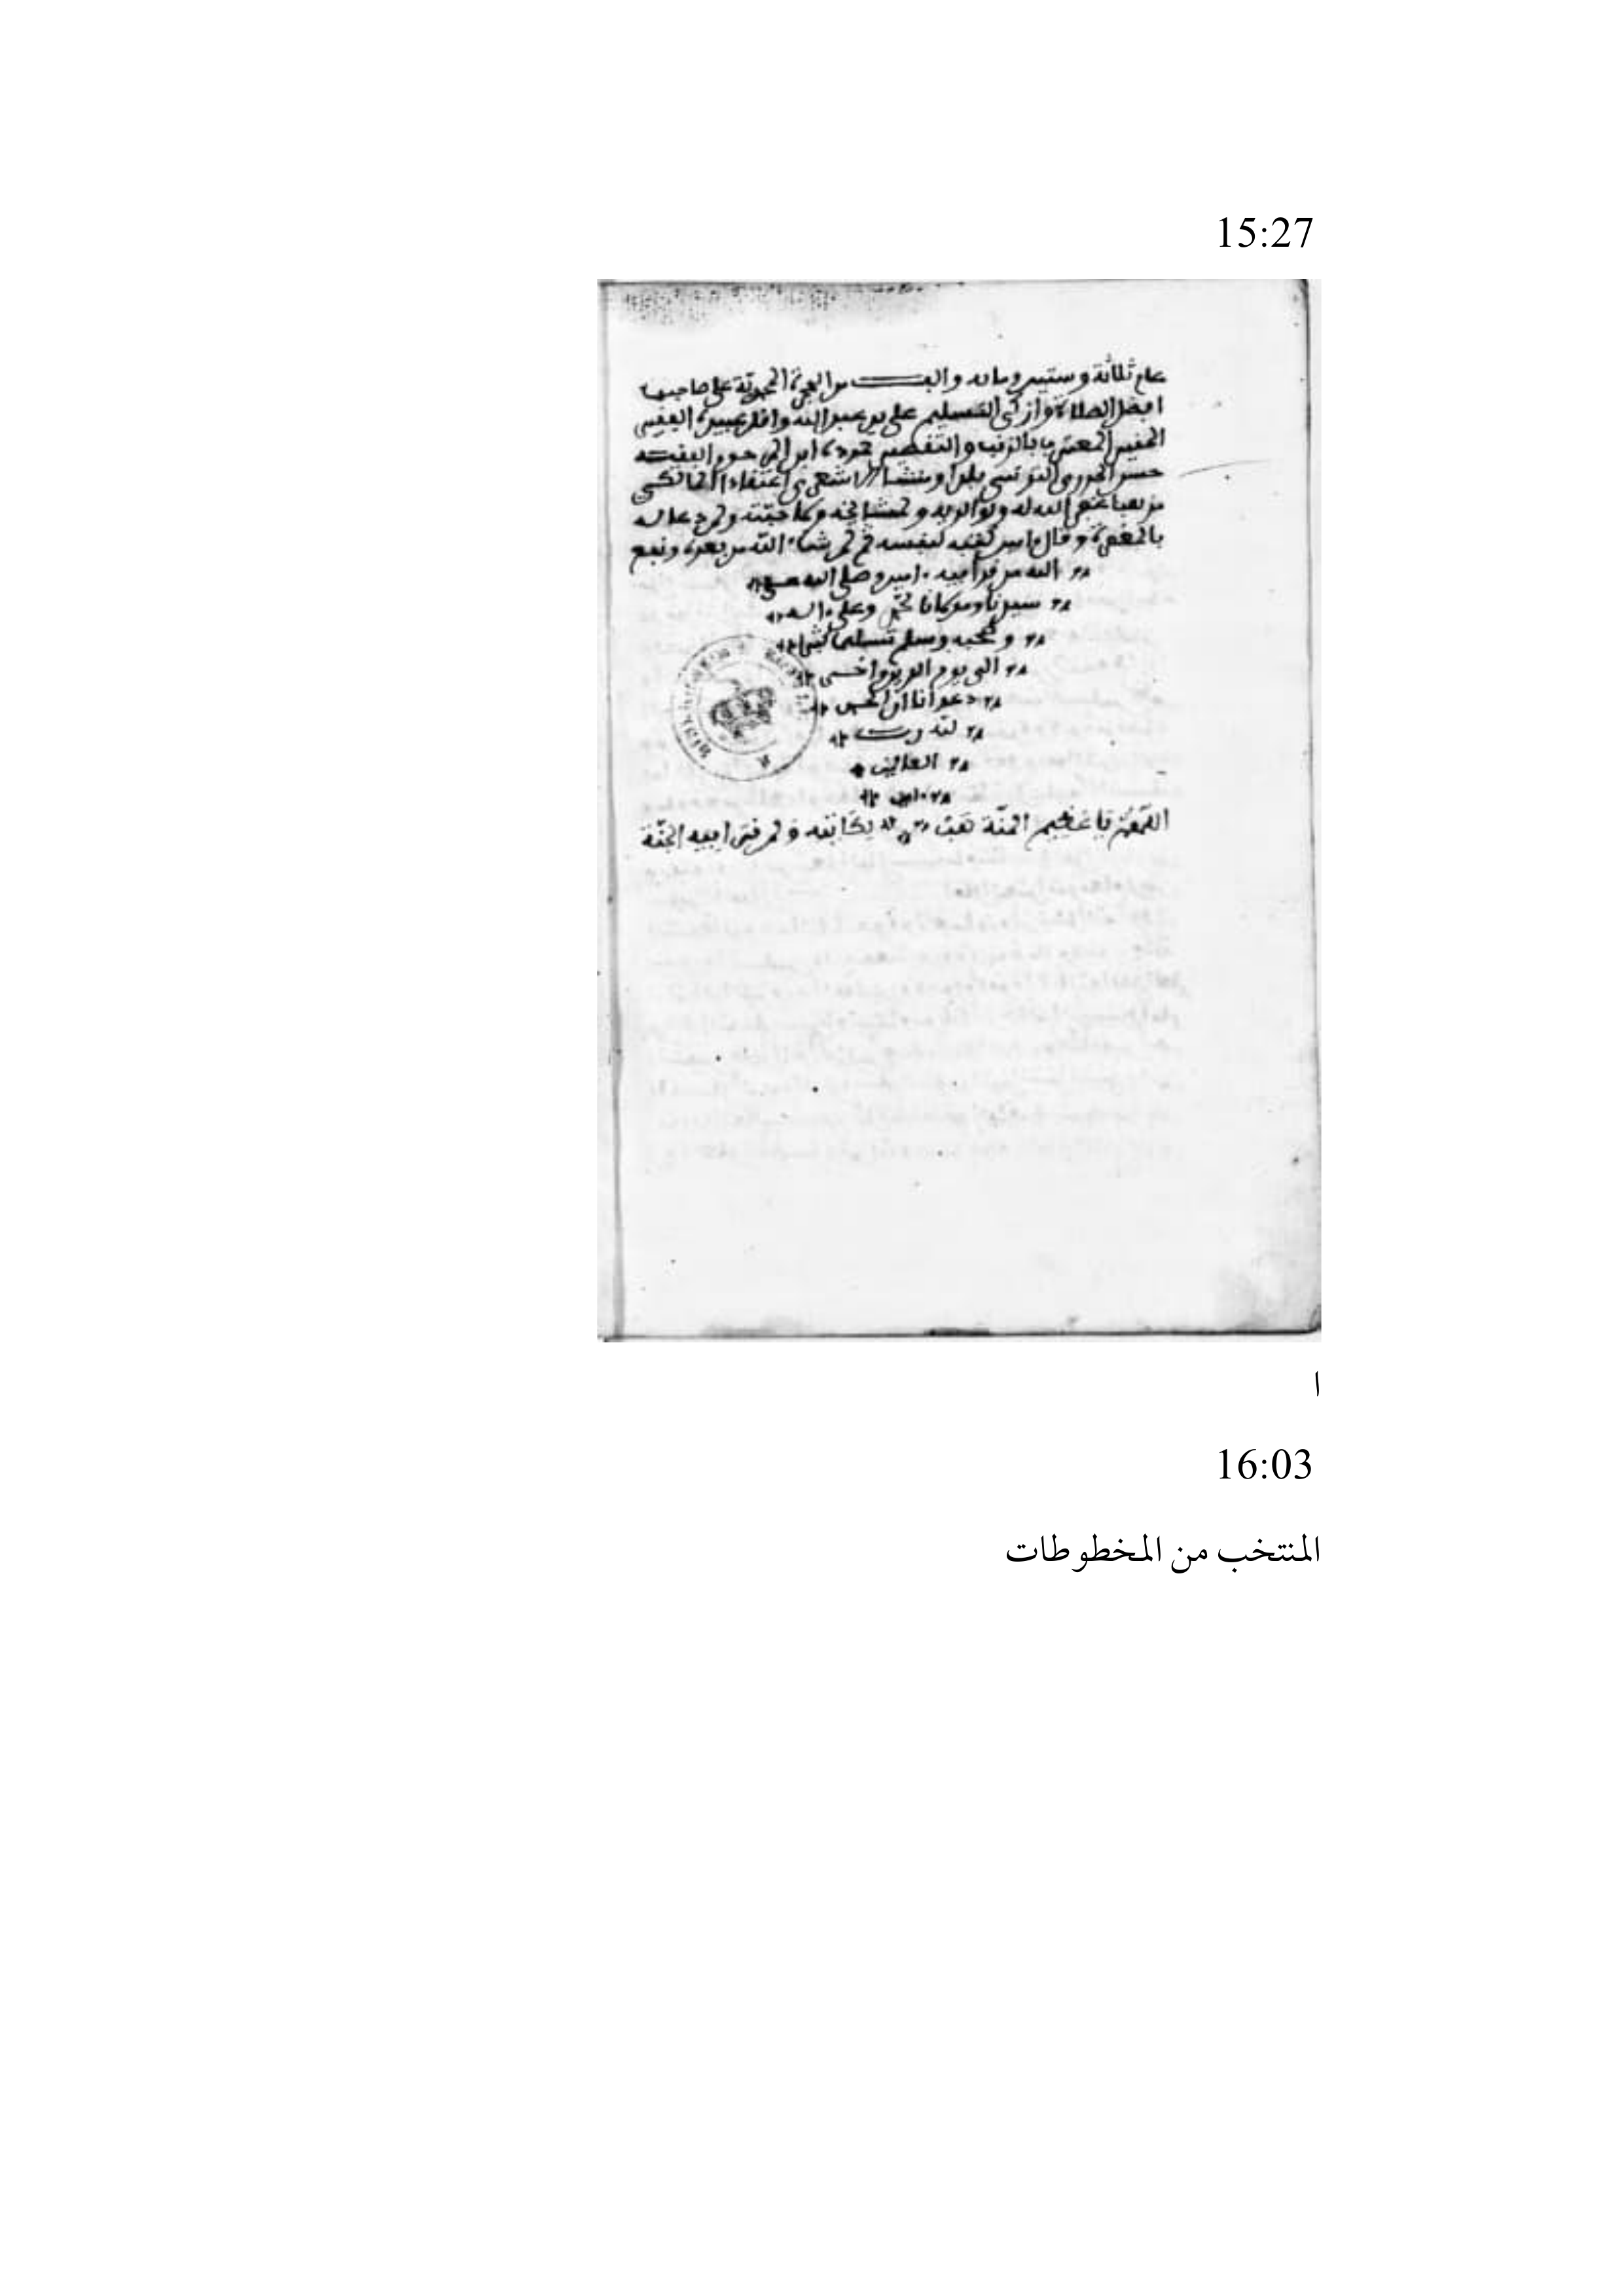 15:27
عام ثلاثة وستين ومائة والف من الهجرة المحمدية على صاحبها
افضل الصلاة وازكى التسليم على يد عبد الله واقل عبيده الفقير
الحقير المعترف بالذنب والتقصير حمودة ابن المرحوم الفقيه
حسن التونسي بلدا ومنشا الاشعري اعتقادا المالكي
مذهبا غفر الله له ولوالديه ولمشائخه وللمن دعا له
بالمغفرة وقال امين كتبه لنفسه ثم لمن شاء الله من بعده ونفع
الله من قرا فيه امين وصلى الله على
سيدنا ومولانا محمد وعلى اله
وصحبه وسلم تسليما كثيرا
الى يوم الدين واخر
دعوانا ان الحمد
لله رب
العالمين
امين
اللهم يا عظيم المنة هب لكاتبه ولمن قرا فيه الجنة
ا
16:03
المنتخب من المخطوطات